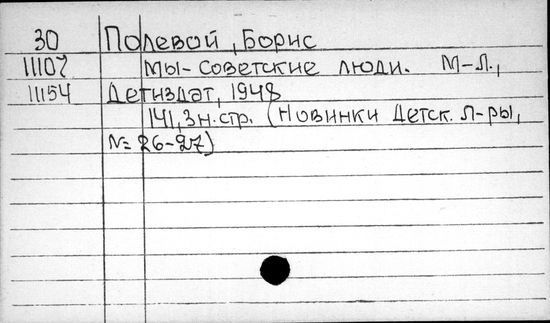 30 Полевой, Борис
11107 Мы-советские люди. М-Л.,
11154 Детиздат, 1948
141, 3 н.стр. (Новинки Детск. л-ры,
№ 26-27)